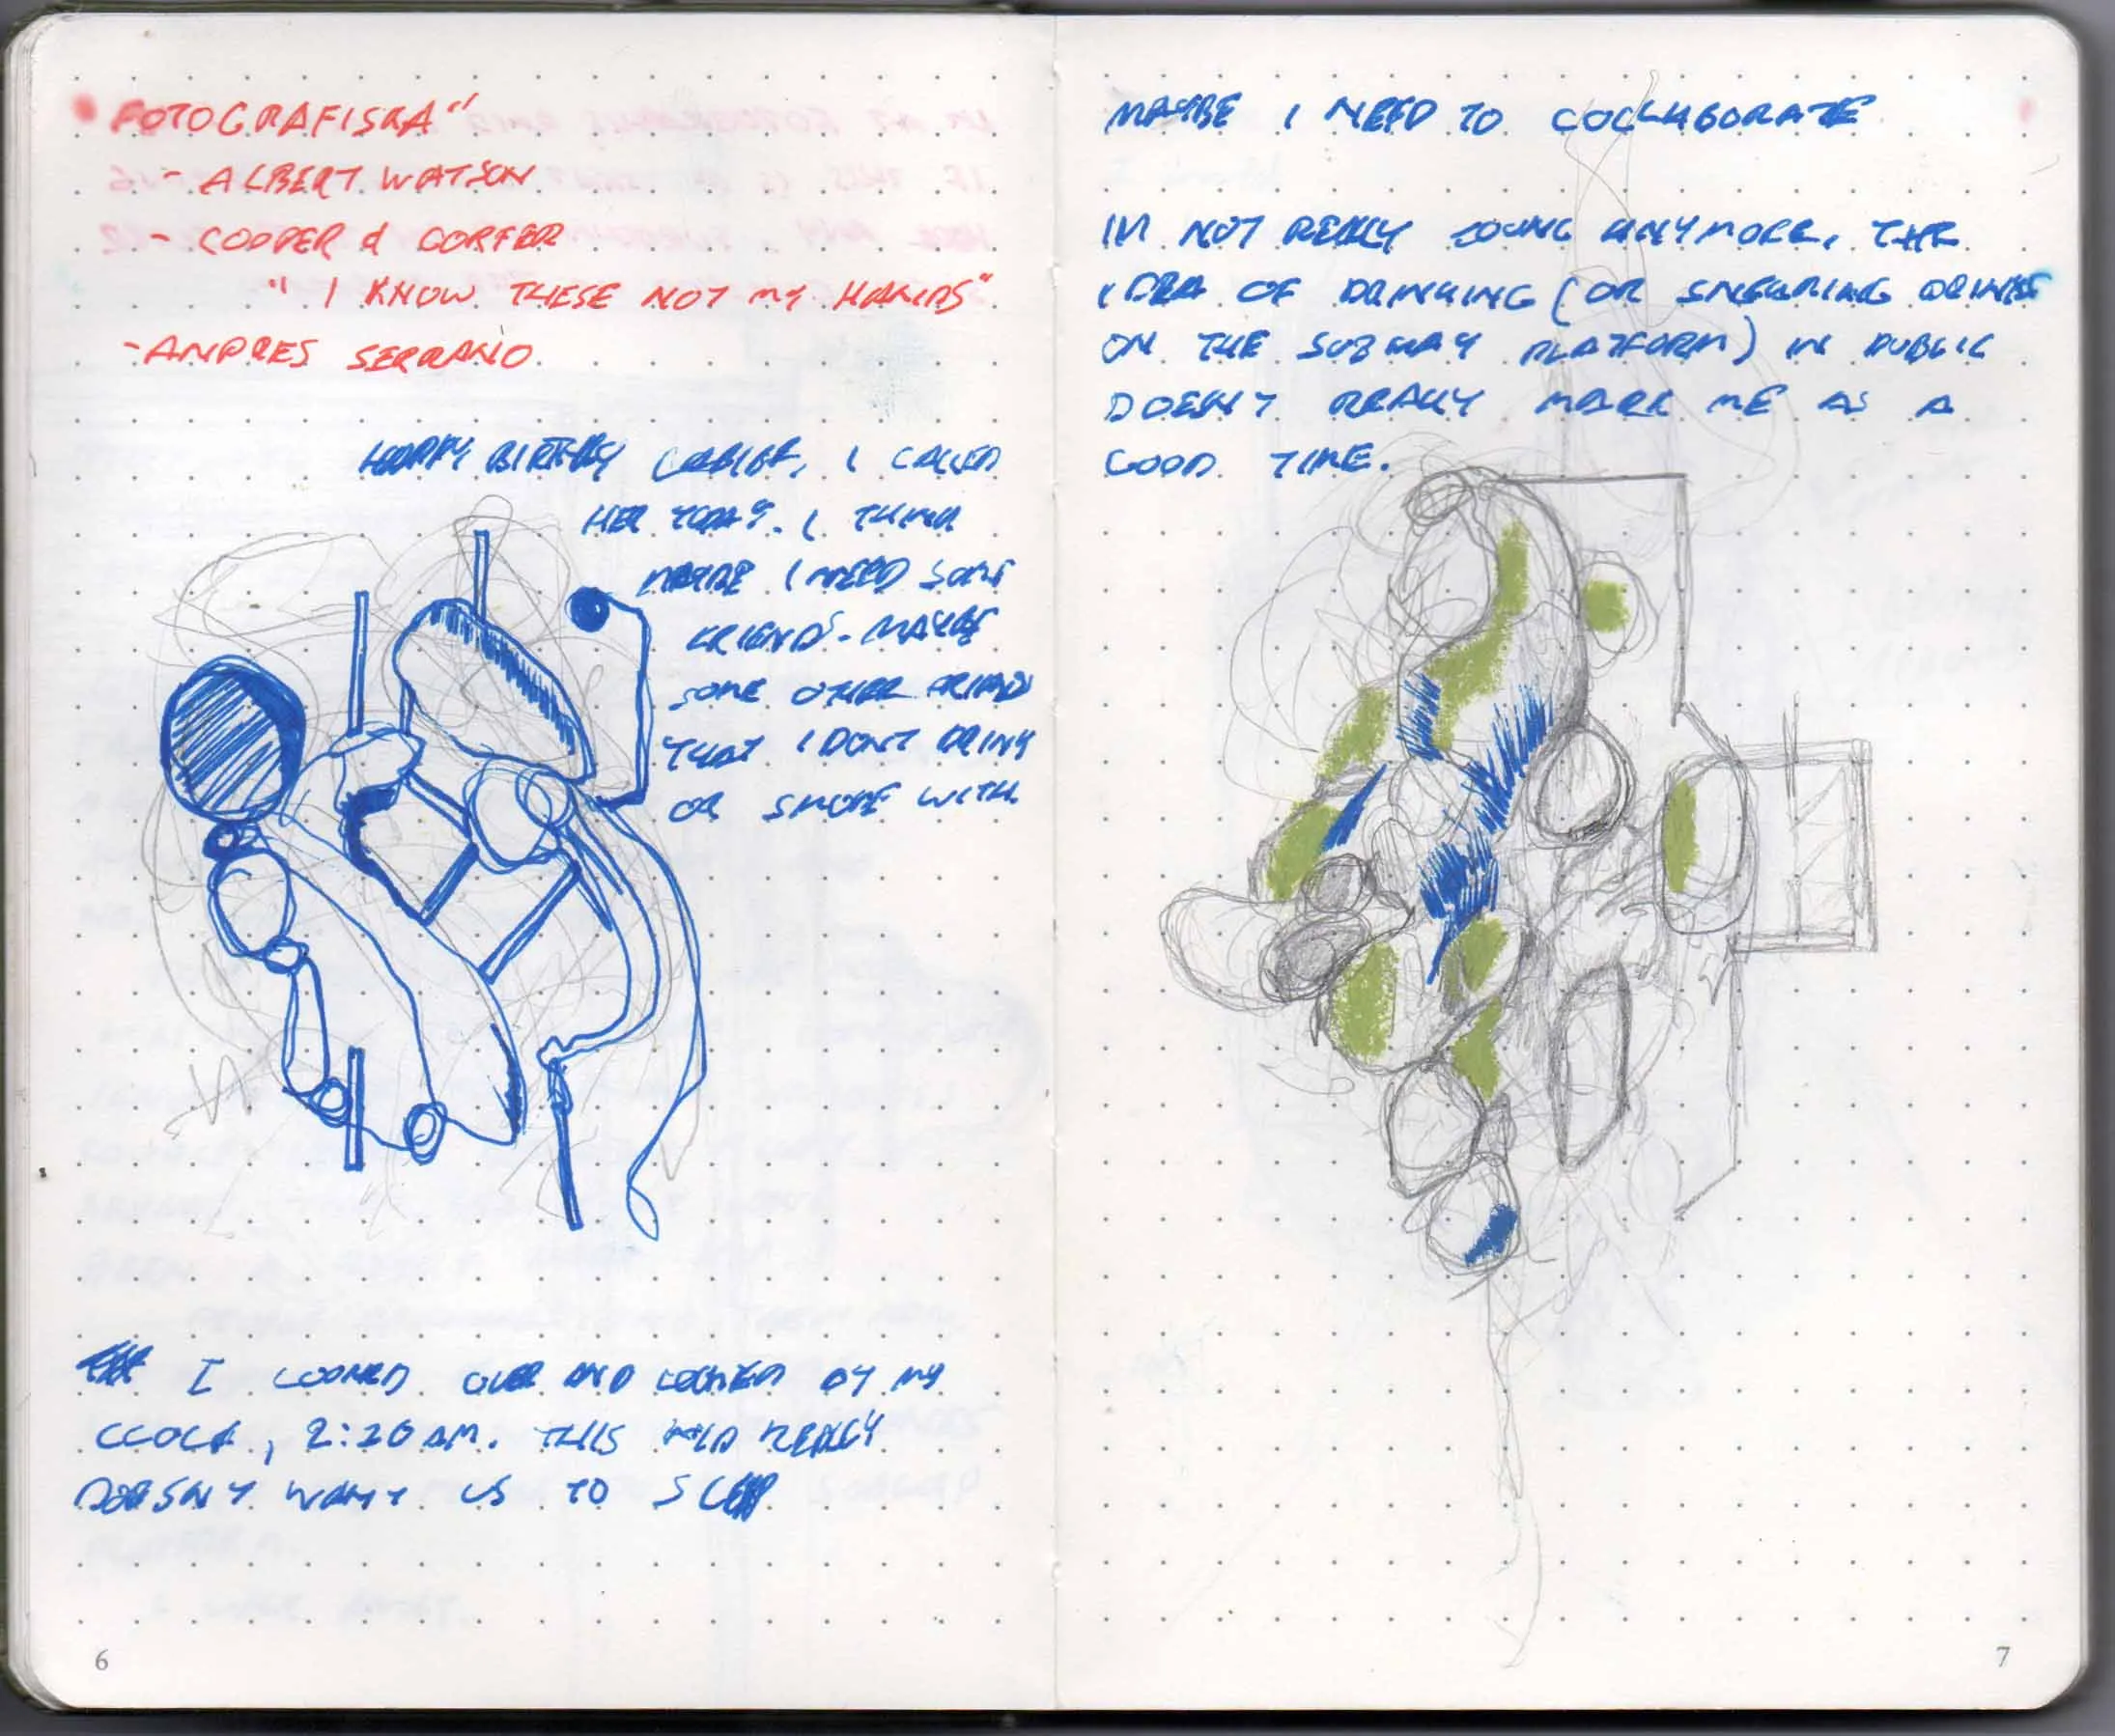 "FOTOGRAFISKA"
- ALBERT WATSON
- COOPER & GORFER
" I KNOW THESE NOT MY HANDS"
- ANDRES SERRANO
HAPPY BIRTHDAY, I CALLED
HER TODAY. I THINK
MAYBE I NEED SOME
FRIENDS - MAYBE
SOME OTHER FRIENDS
THAT I DONT DRINK
OR SMOKE WITH.
I LOOKED OVER AND LOOKED AT MY
CLOCK, 2:20 AM. THIS REALLY
DOESNT WANT US TO SLEEP
6
MAYBE I NEED TO COLLABORATE
IM NOT REALLY YOUNG ANYMORE, THE
IDEA OF DRINKING (OR SNEAKING DRINKS
ON THE SUBWAY PLATFORM) IN PUBLIC
DOESNT REALLY MARK ME AS A
GOOD TIME.
7